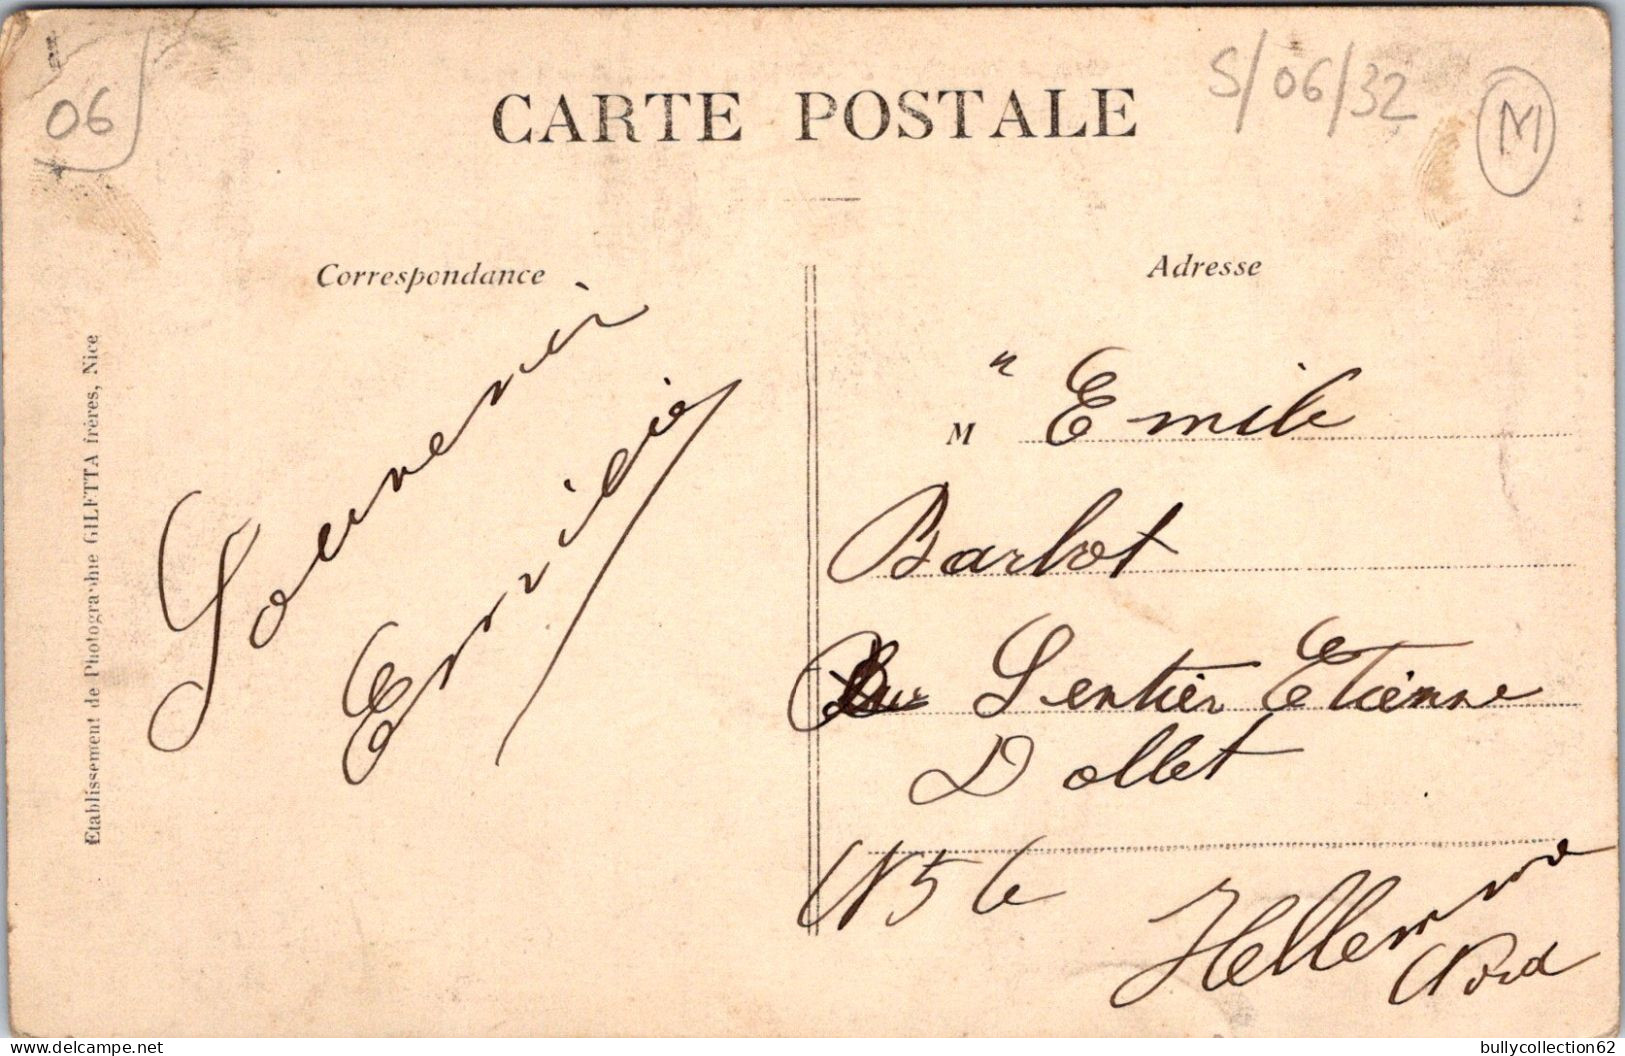 06
CARTE POSTALE
S/06/32
M
Correspondance
Adresse
Etablissement de Photographie GILETTA frères, Nice
Souvenir
Emilie
M r Emile
Barbot
Sentier Etienne
Dollet
N 56
Hellemme
Nord
bullycollection62